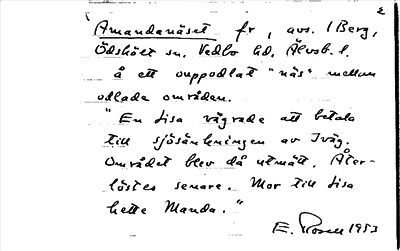 2
Amandanäset fr, avs. 1 Berg,
Ödskölt sn. Vedbo hd. Älvsb. l.
å ett ouppodlat "näs" mellan
odlade områden.
"En Lisa vägrade att betala
till sjösänkningen av Iväg.
Området blev då utmätt. Åter-
löstes senare. Mor till Lisa
hette Manda."
E. Rosell 1953